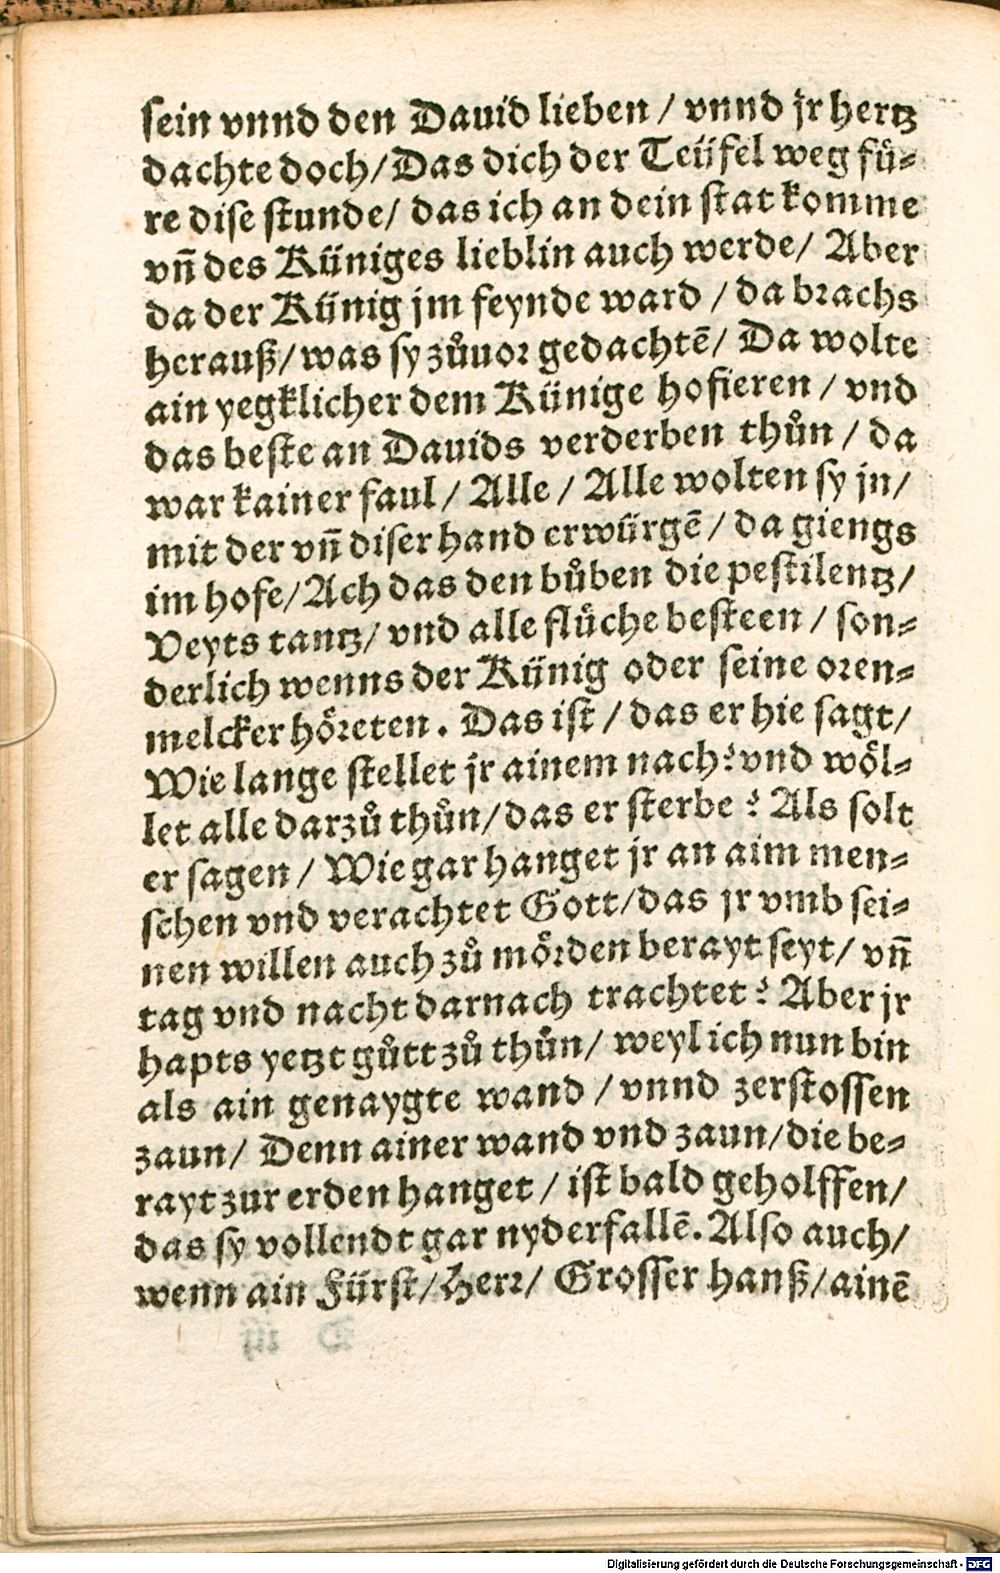 sein vnnd den Dauid lieben / vnnd jr hertz
dachte doch/Das dich der Teüfel weg fuͤ⸗
re dise stunde/ das ich an dein stat komme
vn̄ des Küniges lieblin auch werde/ Aber
da der Künig jm feynde ward / da brachs
herauß/was sy zůuor gedachtē/ Da wolte
ain yegklicher dem Künige hofieren / vnd
das beste an Dauids verderben thůn / da
war kainer faul/ Alle / Alle wolten sy jn/
mit der vn̄ diser hand erwürgē/ da giengs
im hofe/Ach das den bůben die pestilentz/
Veyts tantz/ vnd alle fluͤche besteen / son⸗
derlich wenns der Künig oder seine oren⸗
melcker hoͤreten. Das ist / das er hie sagt/
Wie lange stellet jr ainem nach? vnd woͤl⸗
let alle darzů thůn/das er sterbe ? Als solt
er sagen / Wie gar hanget jr an aim men⸗
schen vnd verachtet Gott/das jr vmb sei⸗
nen willen auch zů moͤrden berayt seyt/ vn̄
tag vnd nacht darnach trachtet? Aber jr
hapts yetzt gůtt zů thůn/ weyl ich nun bin
als ain genaygte wand / vnnd zerstossen
zaun/ Denn ainer wand vnd zaun/die be⸗
rayt zur erden hanget / ist bald geholffen/
das sy vollendt gar nyderfallē. Also auch/
wenn ain Fürst/Herr/ Grosser hanß/ainē
Digitalisierung gefördert durch die Deutsche Forschungsgemeinschaft - DFG